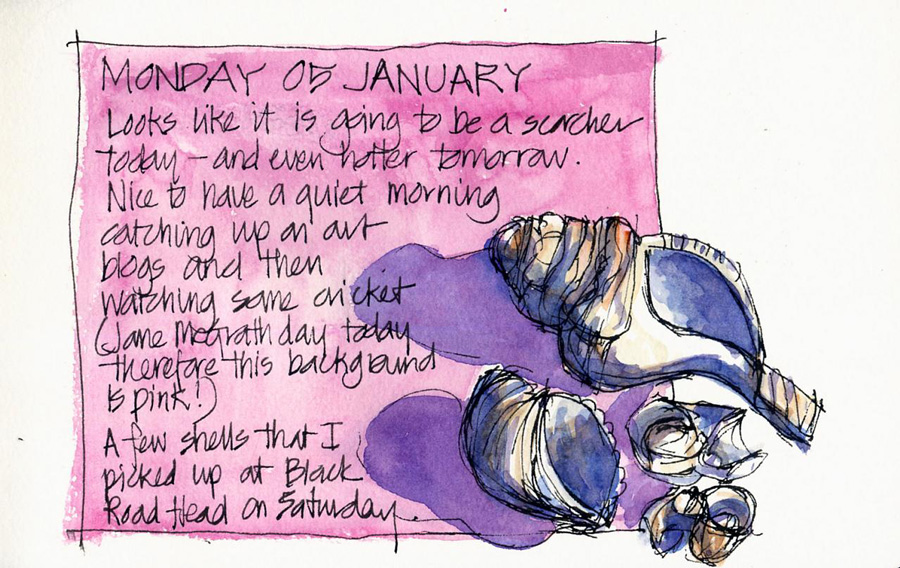 MONDAY 05 JANUARY
Looks like it is going to be a scorcher
today - and even hotter tomorrow.
Nice to have a quiet morning
catching up on art
blogs and then
watching some cricket
(Jane McGrath day today
therefore this background
is pink!)
A few shells that I
picked up at Black
Road Head on Saturday.